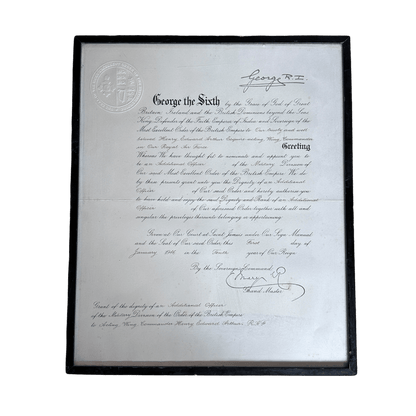 George R.I.
George the Sixth by the Grace of God of Great
Britain Ireland and the British Dominions beyond the Seas
King Defender of the Faith Emperor of India and Sovereign of the
Most Excellent Order of the British Empire to Our trusty and well
beloved Henry Edward Esquire Acting Wing Commander
in Our Royal Air Force Greeting
Whereas We have thought fit to nominate and appoint you to
be an Additional Officer of the Military Division of
Our said Most Excellent Order of the British Empire We do
by these presents grant unto you the Dignity of an Additional
Officer of Our said Order and hereby authorise you
to have hold and enjoy the said Dignity and Rank of an Additional
Officer of Our aforesaid Order together with all and
singular the privileges thereunto belonging or appertaining
Given at Our Court at Saint James's under Our Sign Manual
and the Seal of Our said Order this First day of
January in the year of Our Reign
By the Sovereign's Command
Grand Master
Grant of the dignity of an Additional Officer
of the Military Division of the Order of the British Empire
to Acting Wing Commander Henry Edward R.A.F.